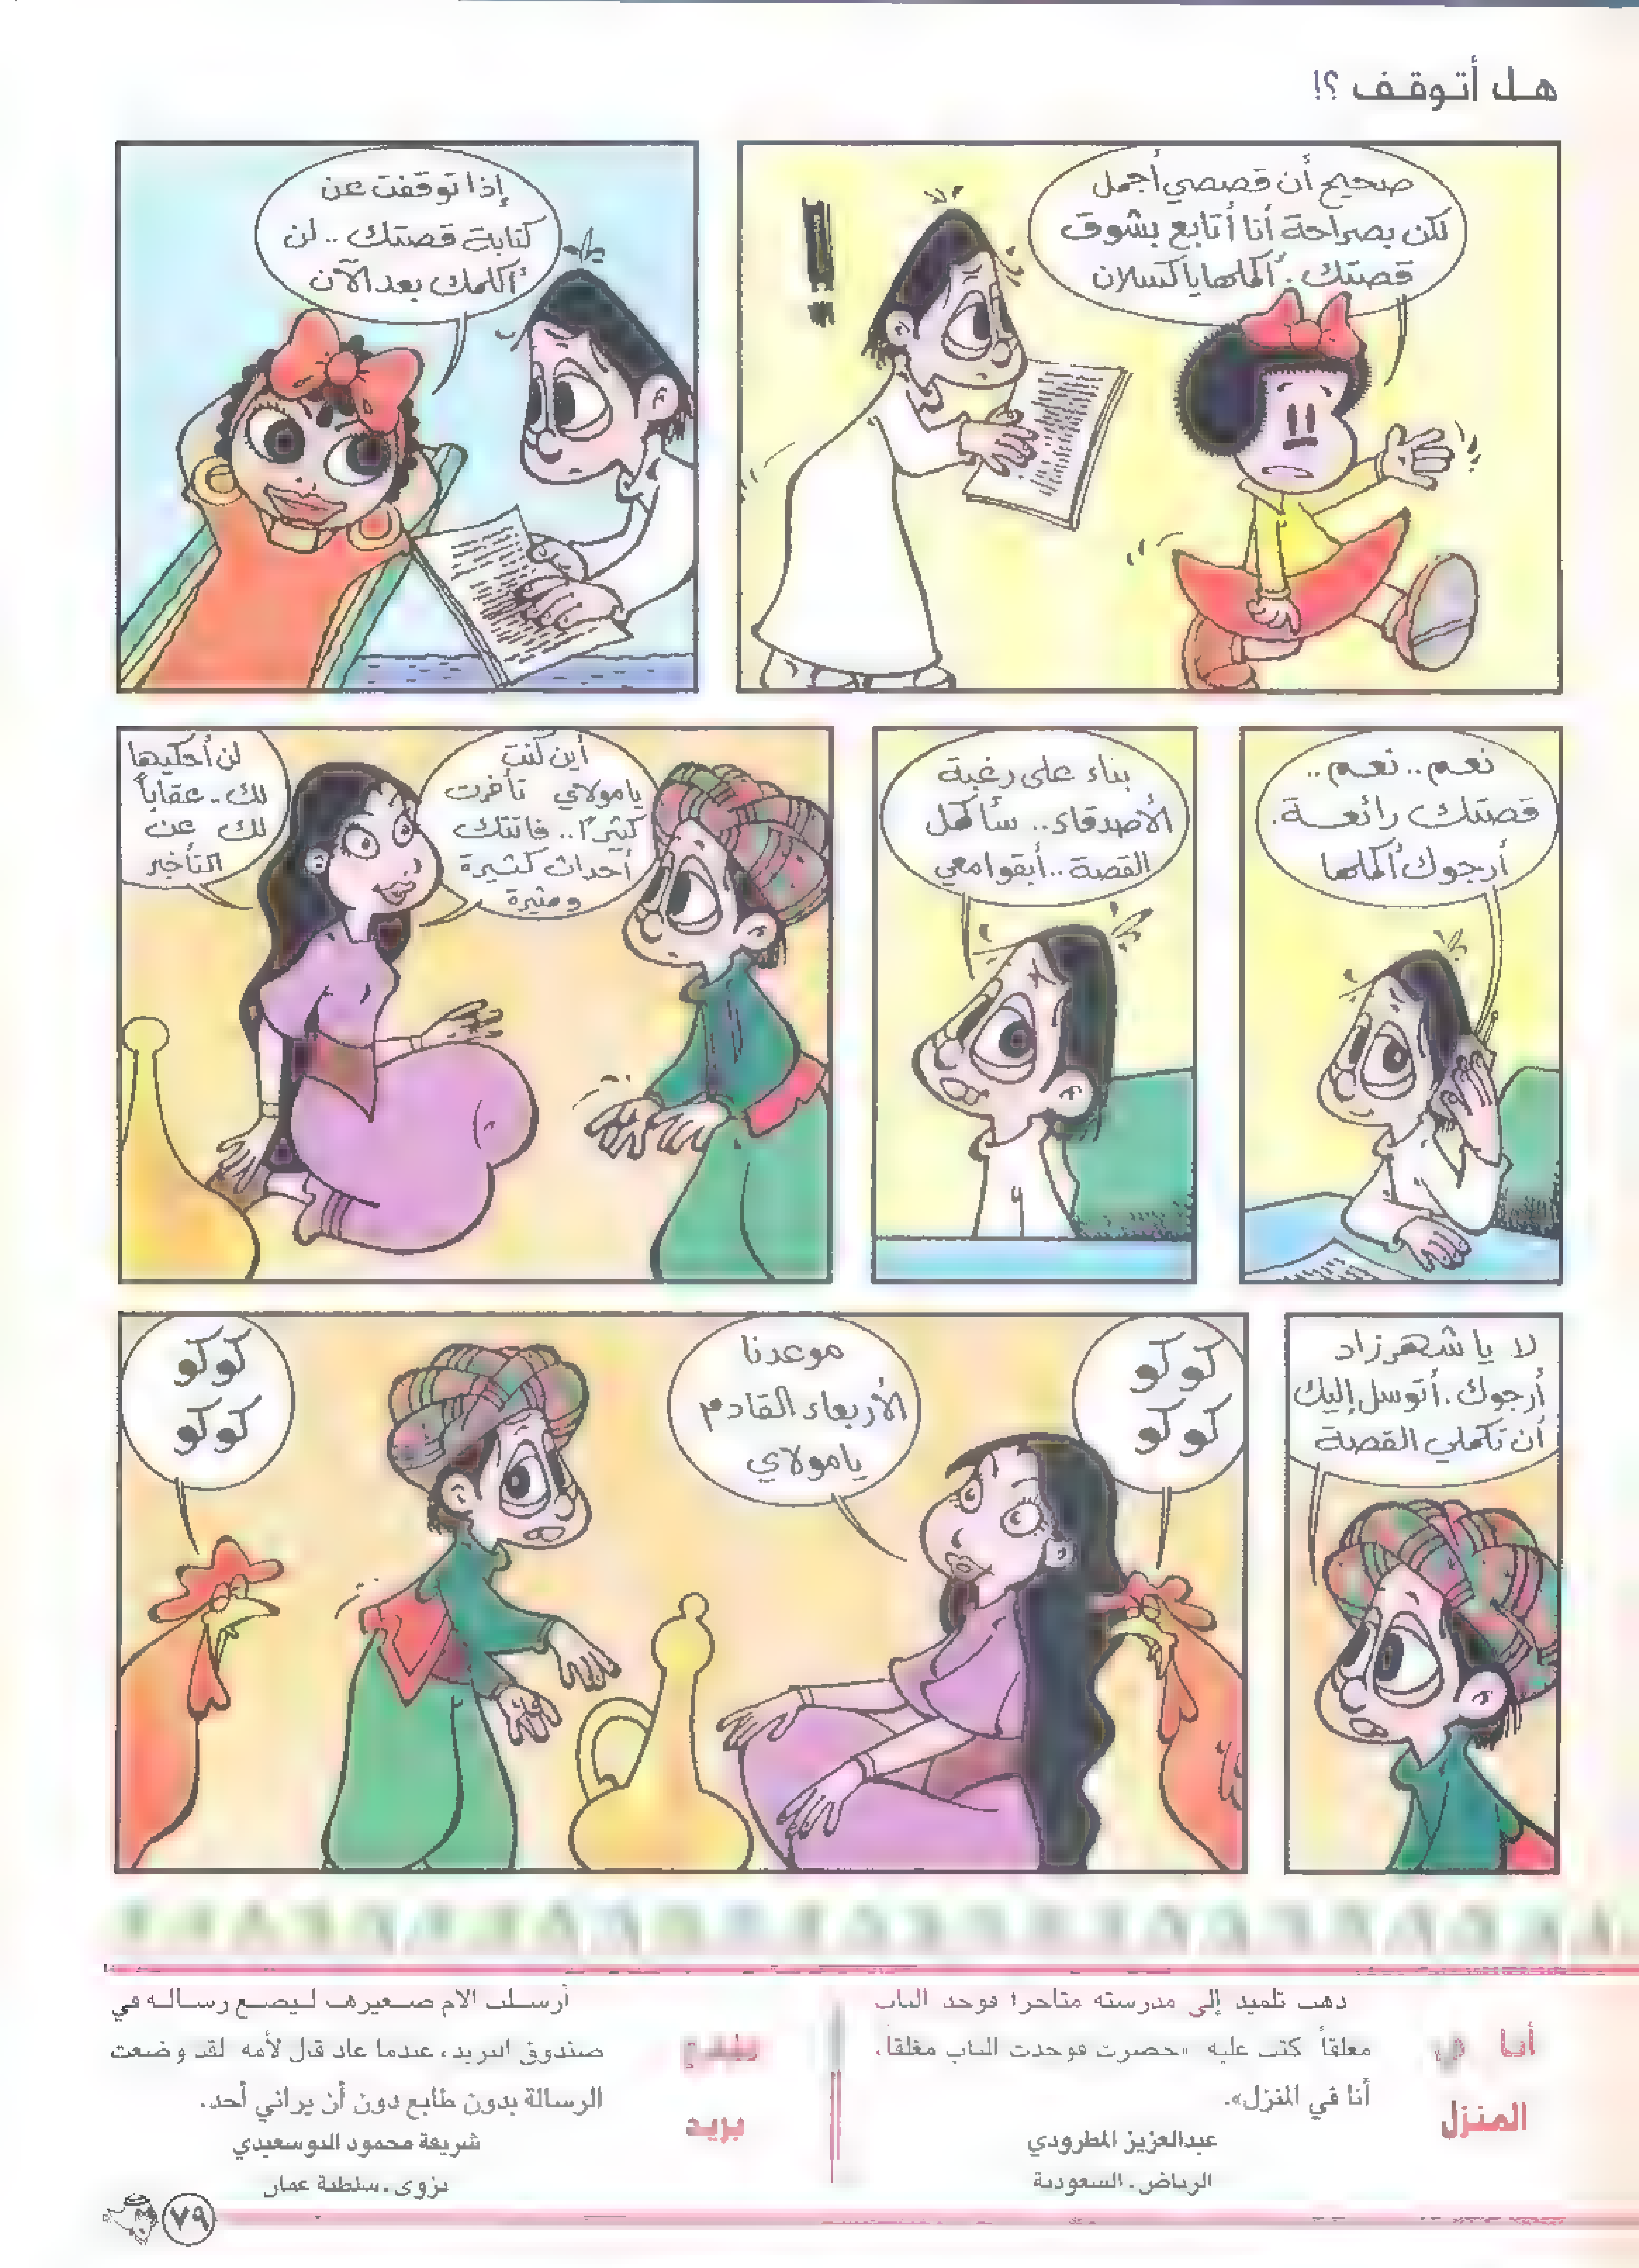 هل أتوقف ؟!
صحيح أن قصصي أجمل
لكن بصراحة أنا أتابع بشوق
قصتك . أكملها يا كسلان
إذا توقفت عن
كتابة قصتك .. لن
أكلمك بعد الآن
نعم .. نعم ..
قصتك رائعة .
أرجوك أكملها
بناء على رغبة
الأصدقاء .. سأكمل
القصة .. أبقوا معي
أين كنت
يا مولاي تأخرت
كثيرًا .. فاتتك
أحداث كثيرة
ومثيرة
لن أحكيها
لك .. عقاباً
لك عن
التأخير
لا يا شهرزاد
أرجوك . أتوسل إليك
أن تكملي القصة
كوكو
كوكو
موعدنا
الأربعاء القادم
يا مولاي
كوكو
كوكو
أنا في
المنزل
ذهب تلميذ إلى مدرسته متأخراً فوجد الباب
مغلقاً كتب عليه «حضرت فوجدت الباب مغلقاً،
أنا في المنزل».
عبدالعزيز المطرودي
الرياض . السعودية
بريد
أرسلت الأم صغيرها ليضع رسالة في
صندوق البريد، عندما عاد قال لأمه لقد وضعت
الرسالة بدون طابع دون أن يراني أحد.
شريفة محمود البوسعيدي
نزوى . سلطنة عمان
٧٩